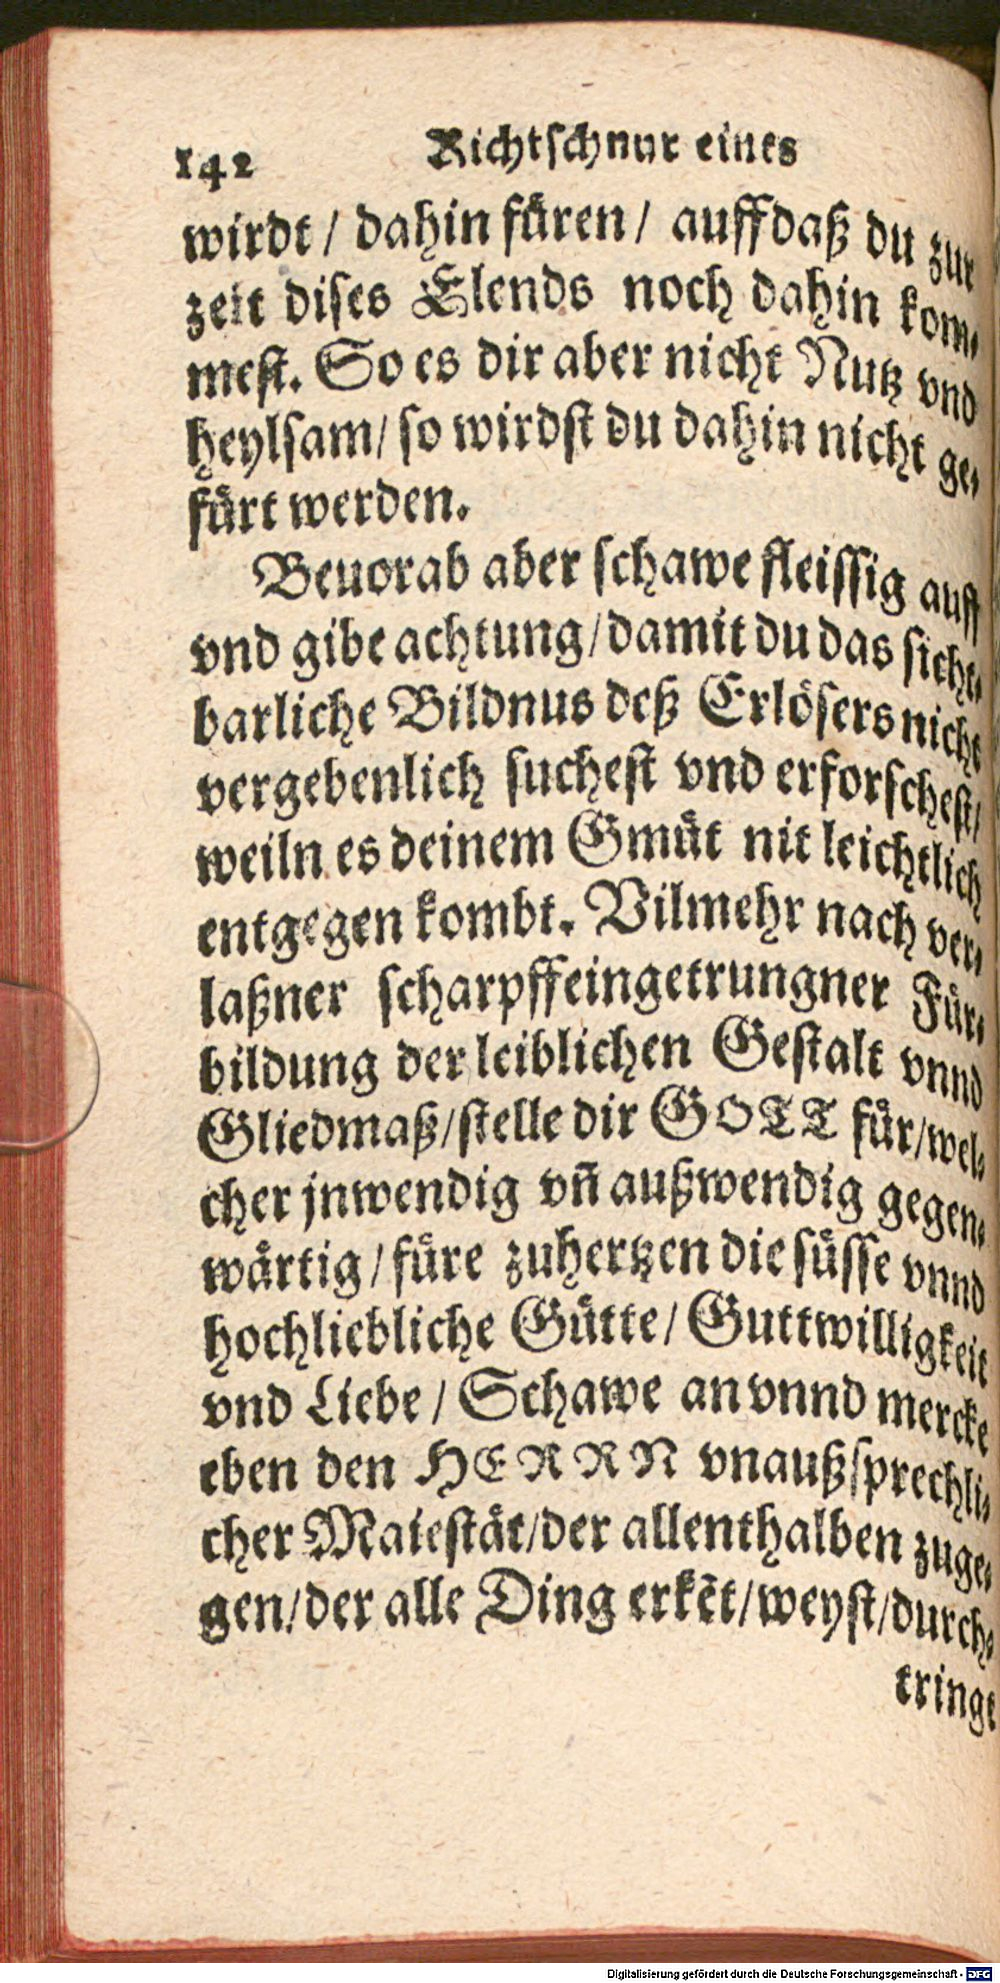 142 Richtschnur eines
wirdt / dahin füren / auffdaß du zur
zeit dises Elends noch dahin kom-
mest. So es dir aber nicht Nutz vnd
heylsam / so wirdst du dahin nicht ge-
fürt werden.
Beuorab aber schawe fleissig auff
vnd gibe achtung / damit du das sicht-
barliche Bildnus deß Erlösers nicht
vergebenlich suchest vnd erforschest /
weiln es deinem Gmüt nit leichtlich
entgegen kombt. Vilmehr nach ver-
laßner scharpffeingetrungner Für-
bildung der leiblichen Gestalt vnnd
Gliedmaß / stelle dir GOTT für / wel-
cher jnwendig vñ außwendig gegen-
wärtig / füre zuhertzen die süsse vnnd
hochliebliche Gütte / Guttwilligkeit
vnd Liebe / Schawe an vnnd mercke
eben den HERRN vnaußsprechli-
cher Maiestät / der allenthalben zuge-
gen / der alle Ding erkẽt / weyst / durch-
tringt
Digitalisierung gefördert durch die Deutsche Forschungsgemeinschaft - DFG